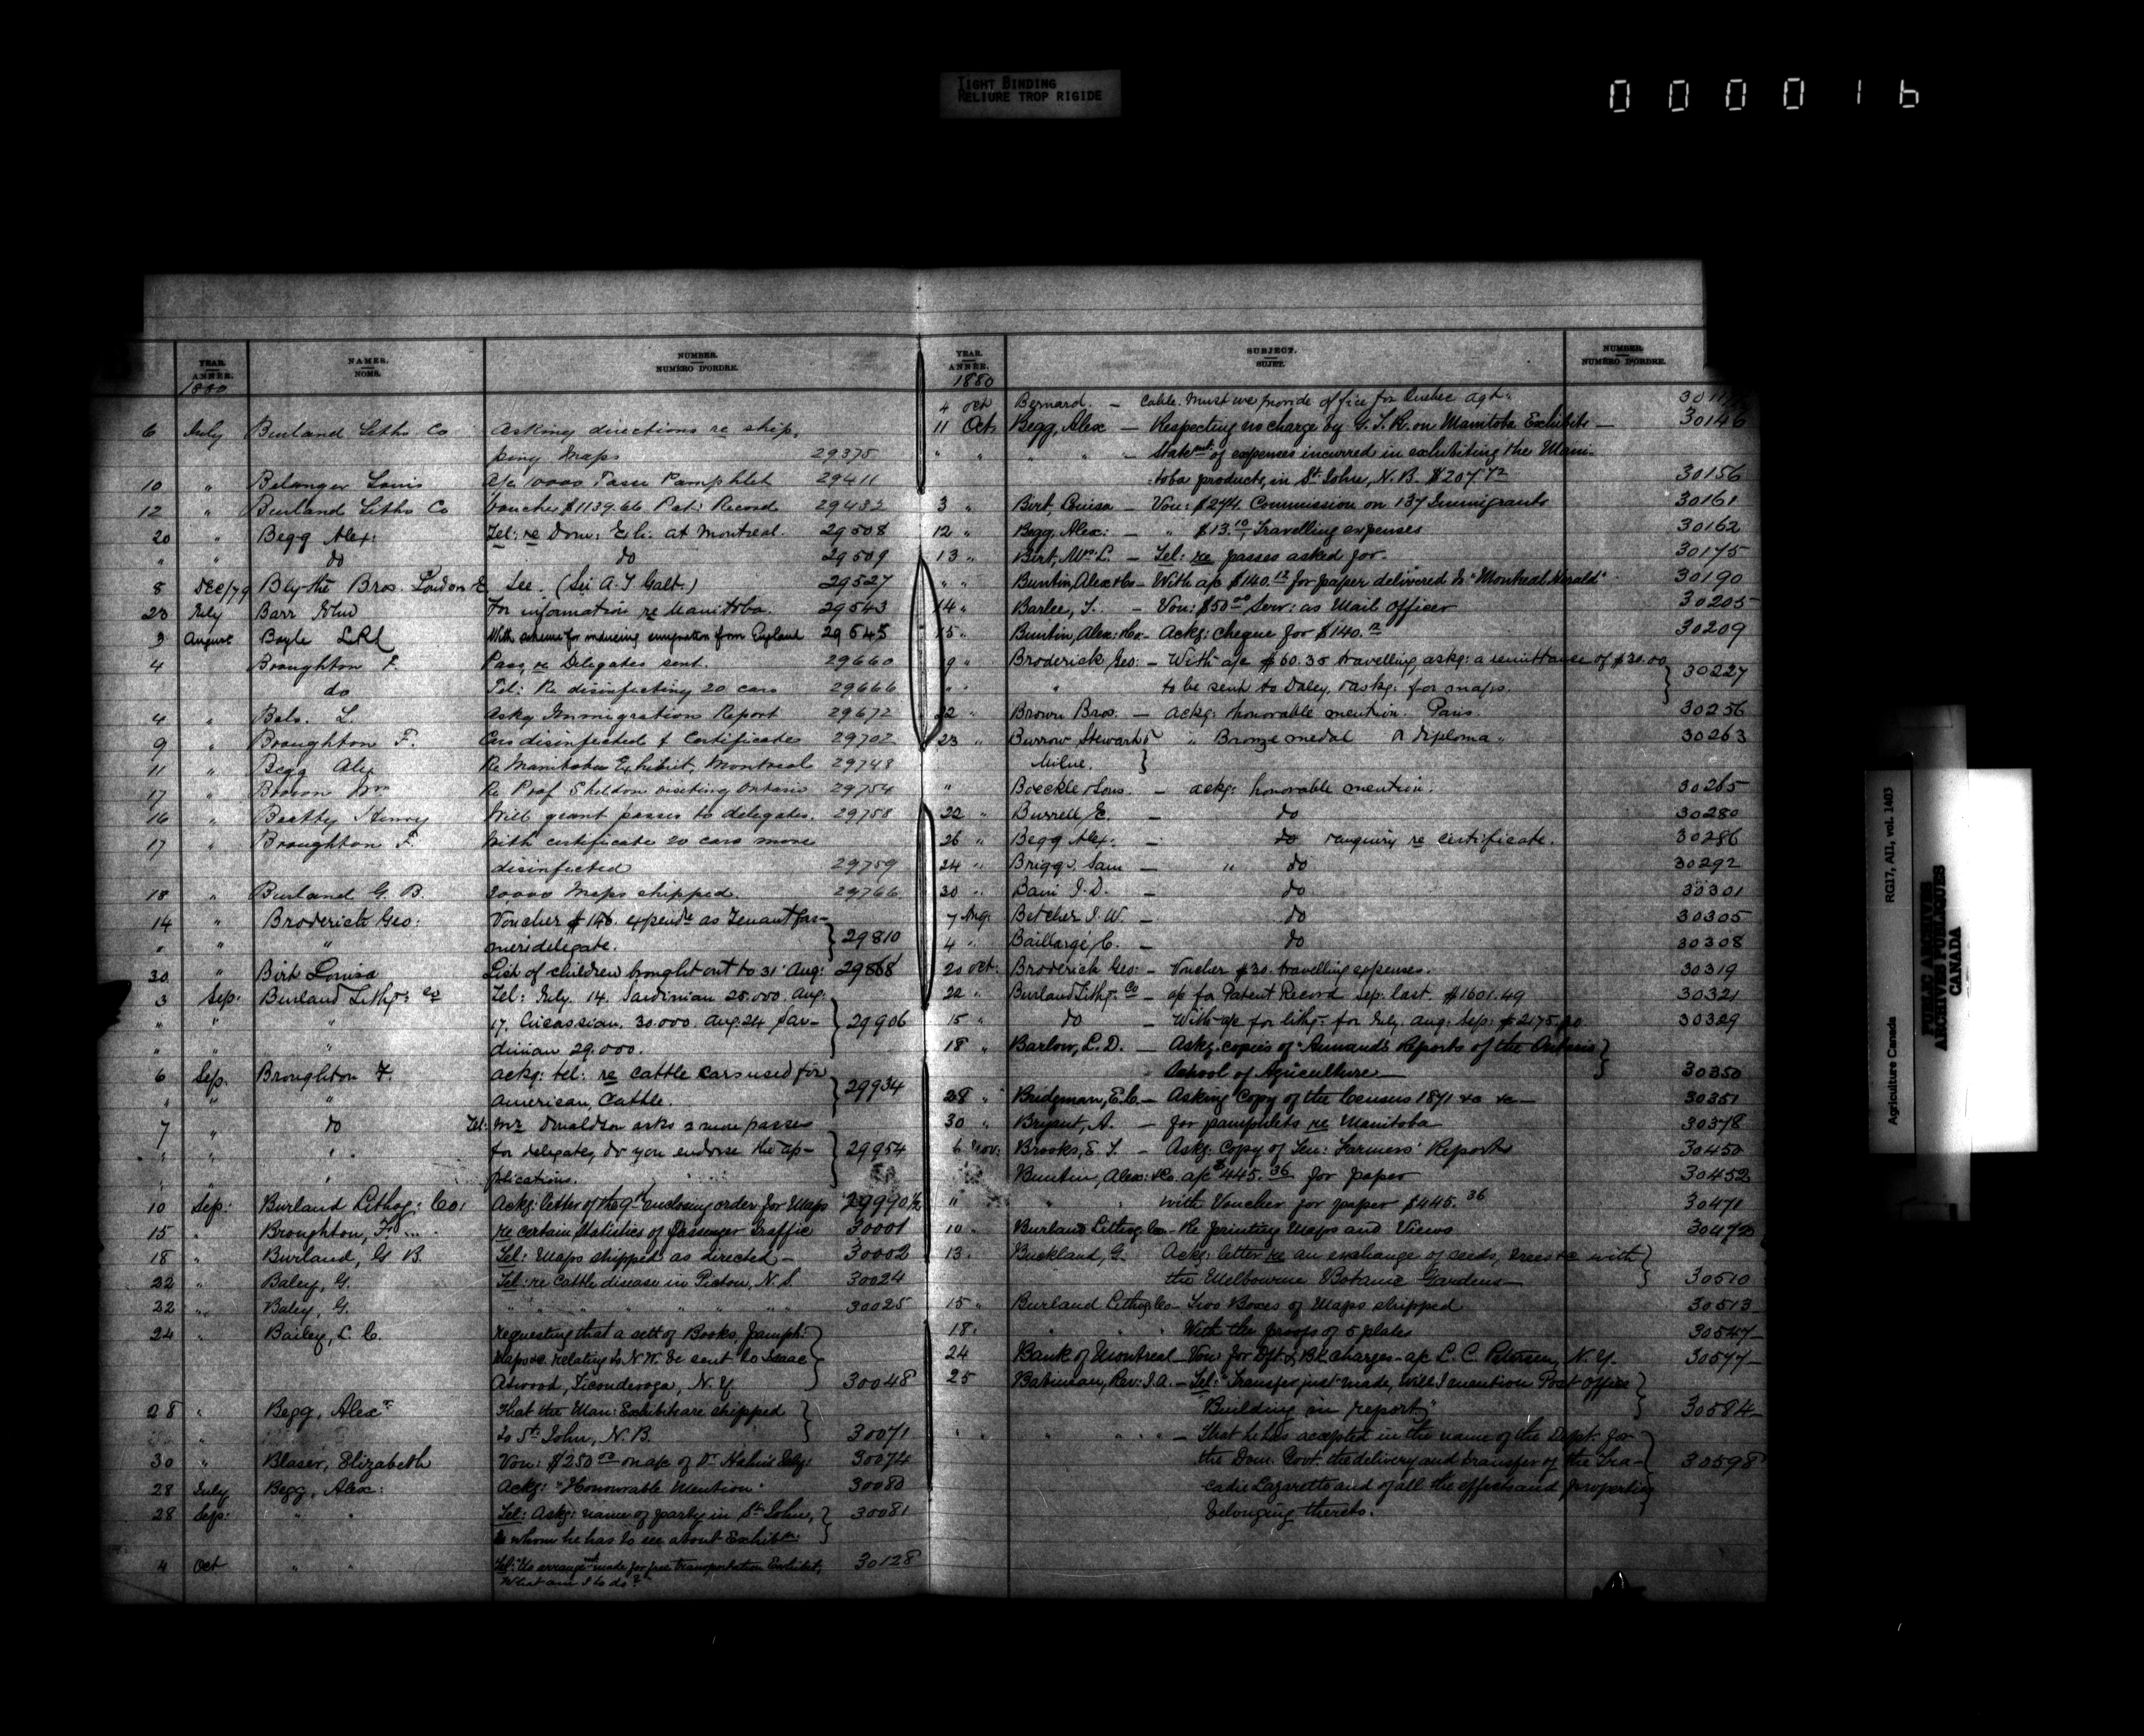 TIGHT BINDING
RELIURE TROP RIGIDE
000016
YEAR. ANNÉE. NAMES. NOMS. NUMBER. NUMÉRO D'ORDRE.
1880
6 July Burland Litho Co Asking directions re ship,
ping Maps 29375
10 " Belanger Louis a/c 10000 Tasse Pamphlet 29411
12 " Burland Litho Co Voucher $1139.66 Pat: Record 29432
20 " Begg Alex: Tel: re Dom: Ex. at Montreal. 29508
" " do do 29509
8 Dec/79 Blythe Bros. London E See. (Sir A. T. Galt.) 29527
23 July Barr John For information re Manitoba. 29543
3 August Boyle With scheme for inducing emigration from England 29545
4 Broughton F. Pass, re Delegates sent. 29660
do Tel: Re disinfecting 20 cars 29666
4 " L. Askg Immigration Report 29672
9 " Broughton F. Cars disinfected & Certificates 29702
11 " Begg Alex Re Manitoba Exhibit, Montreal 29748
17 " Brown Wm Re Prof Sheldon visiting Ontario 29754
16 " Beatty Henry Will grant passes to delegates. 29758
17 " Broughton F. With certificate 20 cars more
disinfected 29759
18 " Burland G. B. 20,000 Maps shipped 29766
14 " Broderick Geo: Voucher $146. expends as Tenant far-
" " " mers delegate. 29810
30 " Birt Louisa List of children brought out to 31 Aug: 29868
3 Sep: Burland Lithg: Co Tel: July. 14. Sardinian 25.000. Aug:
" " " 17. Circassian. 30.000. Aug. 24 Sar- 29906
" " dinian 29.000.
6 Sep. Broughton F. Ackg: tel: re cattle cars used for
" " " American Cattle. 29934
7 " do Tel: Mr Donaldson asks 2 more passes
" " for delegates, do you endorse the ap- 29954
" plications.
10 Sep: Burland Lithog: Co: Ackg: letter of the 9th enclosing order for Maps 29990½
15 " Broughton, F. re certain Statistics of Passenger Traffic 30001
18 " Burland, G. B. Tel: Maps shipped as directed - 30002
22 " Baley, G. Tel: re Cattle disease in Pictou, N. S. 30024
22 " Baley, G. " " " " " " 30025
24 " Bailey, L. C. requesting that a sett of Books, Pamph:
Maps &c. relating to N. W. be sent to Isaac
Atwood, Ticonderoga, N. Y. 30048
28 " Begg, Alexr That the Man: Exhibits are shipped
" to St. John, N. B. 30071
30 " Blaser, Elizabeth Vou: $250.00 on a/c of Dr 30074
28 July Begg, Alex: Ackg: "Honourable Mention" 30080
28 Sep: " " Tel: Askg: name of party in St. John, 30081
to whom he has to see about Exhibtn
4 Oct " " Tel: "No arrangemt made for free transportation Exhibit, 30128
What am I to do?"
YEAR. ANNÉE. SUBJECT. SUJET. NUMBER. NUMÉRO D'ORDRE.
1880
4 Oct Bernard. - Cable. Must we provide office for Quebec agt.
11 Oct Begg, Alex - Respecting no charge by G. T. R. on Manitoba Exhibits - 30146
" " " " - Statemt of expenses incurred in exhibiting the Mani-
toba products, in St. John, N. B. $207.72 30156
3 " Birt, Louisa - Vou: $274. Commission on 137 Immigrants 30161
12 " Begg, Alex: - " $13.10, Travelling expenses 30162
13 " Birt, Mrs L. - Tel: re passes asked for. 30175
" " Buntin, Alex & Co - With a/c $140.12 for paper delivered to "Montreal Herald" 30190
14 " Barlee, T. - Vou: $50.00 Serv: as Mail Officer 30205
15 " Buntin, Alex: & Co - Ackg: cheque for $140.12 30209
9 " Broderick Geo: - With a/c $60.35 travelling askg: a remittance of $30.00
" " " to be sent to Daley, & askg: for maps. 30227
22 " Brown Bros. - Ackg: honorable mention. Paris. 30256
23 " Burrow Stewart & " Bronze medal & diploma " 30263
Milne.
" Boeckle & Sons - ackg: honorable mention. 30265
22 " Burrell E. - do 30280
26 " Begg Alex. - do & enquiry re certificate. 30286
24 " Briggs Sam - " do 30292
30 " Bain J. D. - do 30301
7 Aug: Betcher J. W. - do 30305
4 " Baillargé C. - do 30308
20 oct: Broderick Geo: - Voucher $30. travelling expenses. 30319
22 " Burland Lithg. Co - a/c for Patent Record Sep: last. $1601.49 30321
15 " do - With a/c for lithg: for July. Aug: Sep: 30329
18 " Barlow, L. D. - Askg. copies of "Annual Reports of the Ontario
School of Agriculture - 30350
28 " Bridgman, E. C. - Asking Copy of the Census 1871 &c &c - 30351
30 " Bryant, A. - for pamphlets re Manitoba 30378
6 Nov: Brooks, E. T. - Askg: Copy of Ten: Farmers' Reports 30450
Buntin, Alex: & Co. a/c $445.36 for paper 30452
" " with Voucher for paper $445.36 30471
10 " Burland Lithog Co - Re printing Maps and Views 30472
13 " Buckland, G. Ackg: letter re an exchange of seeds, trees &c with
the Melbourne Botanic Gardens - 30510
15 " Burland Lithog Co - Two Boxes of Maps shipped 30513
18 " " " With the proofs of 5 plates 30547
24 Bank of Montreal - Vou: for Dft & Bk charges - a/c L. C. Petersen, N. Y. 30577
25 Bateman, Rev: J. A. - Tel: "Transfer just made, will I mention Post Office
Building in report?" 30584
" " " " - That he has accepted in the name of the Dept: for
the Dom: Govt. the delivery and transfer of the Tra- 30598
cadie Lazaretto and of all the effects and properties
belonging thereto.
Agriculture Canada RG17, AII, vol. 1403
PUBLIC ARCHIVES
ARCHIVES PUBLIQUES
CANADA